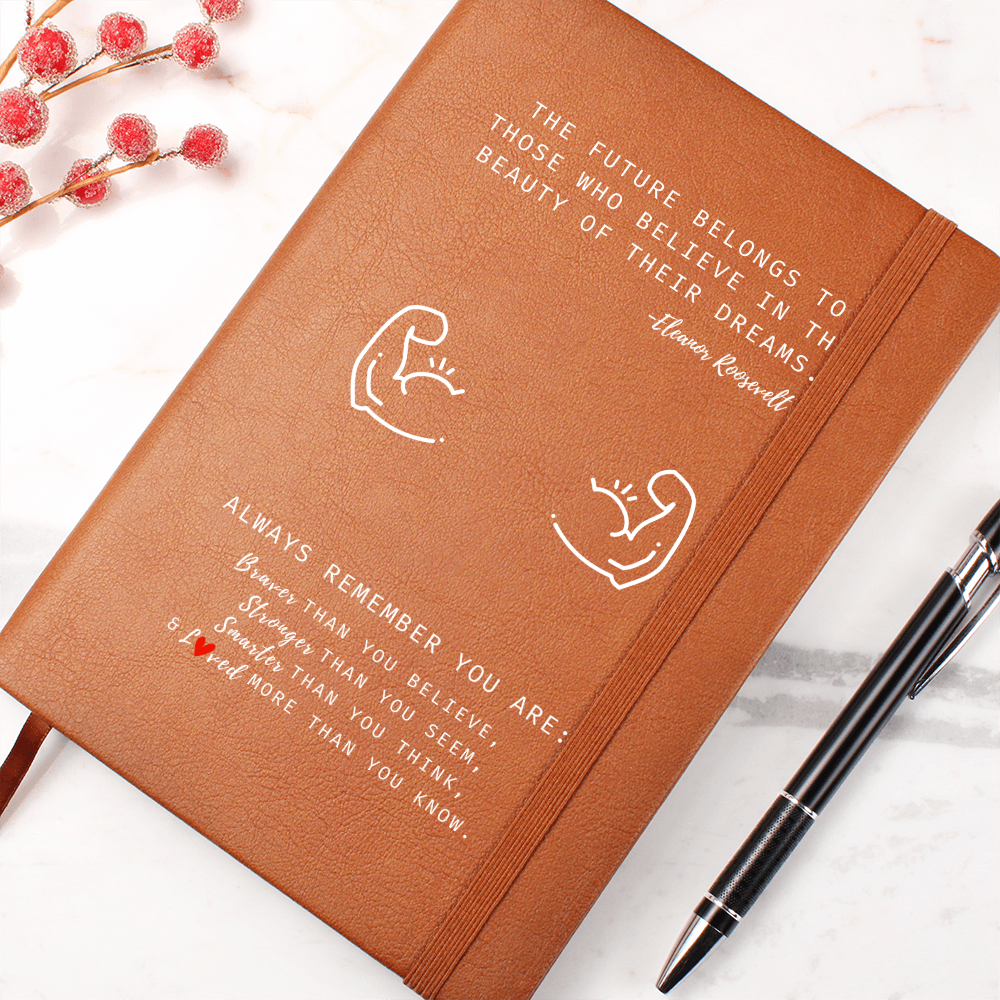 THE FUTURE BELONGS TO
THOSE WHO BELIEVE IN TH
BEAUTY OF THEIR DREAMS.
-Eleanor Roosevelt
ALWAYS REMEMBER YOU ARE:
Braver THAN YOU BELIEVE,
Stronger THAN YOU SEEM,
Smarter THAN YOU THINK,
& Loved MORE THAN YOU KNOW.